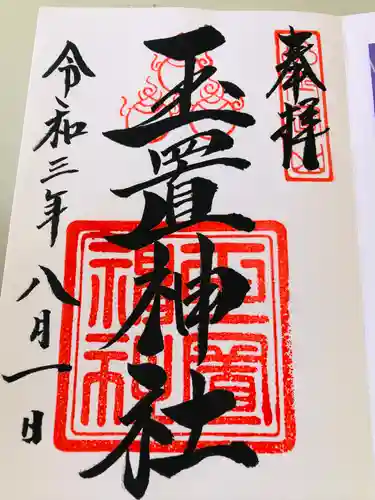 奉拝
玉置神社
玉置
神社
令和三年八月一日